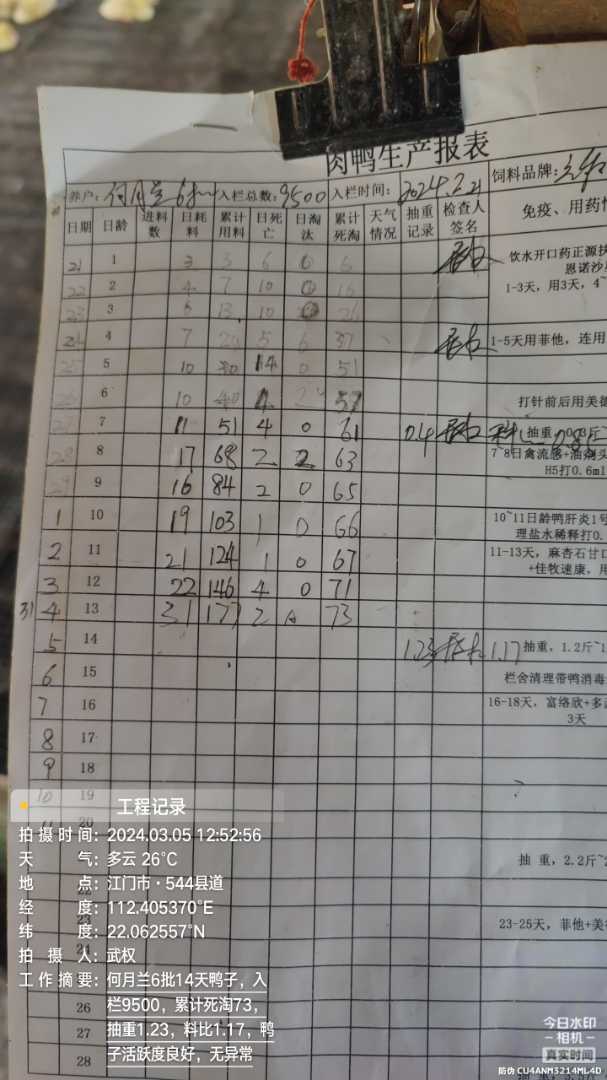 肉鸭生产报表
养户: 何月兰 6批 入栏总数: 9500 入栏时间: 2024.2.21 饲料品牌:
日期 日龄 进料数 日耗料 累计用料 日死亡 日淘汰 累计死淘 天气情况 抽重记录 检查人签名 免疫、用药情
21 1 3 3 6 0 6 饮水开口药正源扶
恩诺沙
1-3天，用3天，4~
22 2 4 7 10 0 16
23 3 6 13 10 0 26
24 4 7 20 5 6 37 1-5天用菲他，连用
25 5 10 30 14 0 51
26 6 10 40 4 2 57 打针前后用美德
27 7 11 51 4 0 61 0.4 抽重，0.3斤~ 0.85
28 8 17 68 2 2 63 7~8日禽流感+油剂头
H5打0.6ml
29 9 16 84 2 0 65
1 10 19 103 1 0 66 10~11日龄鸭肝炎1号
理盐水稀释打0.
2 11 21 124 1 0 67 11-13天，麻杏石甘口
+佳牧速康，用
3 12 22 146 4 0 71
31 4 13 31 177 2 0 73
5 14 1.23 1.17 抽重，1.2斤~1
6 15 栏舍清理带鸭消毒
7 16 16-18天，富络欣+多
3天
8 17
9 18
10 19
20
抽 重，2.2斤~2
23-25天，菲他+美德
26
27
28
工程记录
拍摄时间: 2024.03.05 12:52:56
天 气: 多云 26°C
地 点: 江门市·544县道
经 度: 112.405370°E
纬 度: 22.062557°N
拍 摄 人: 武权
工作摘要: 何月兰6批14天鸭子，入
栏9500，累计死淘73，
抽重1.23，料比1.17，鸭
子活跃度良好，无异常
今日水印
-相机-
真实时间
防伪 CU4ANM3214ML4D